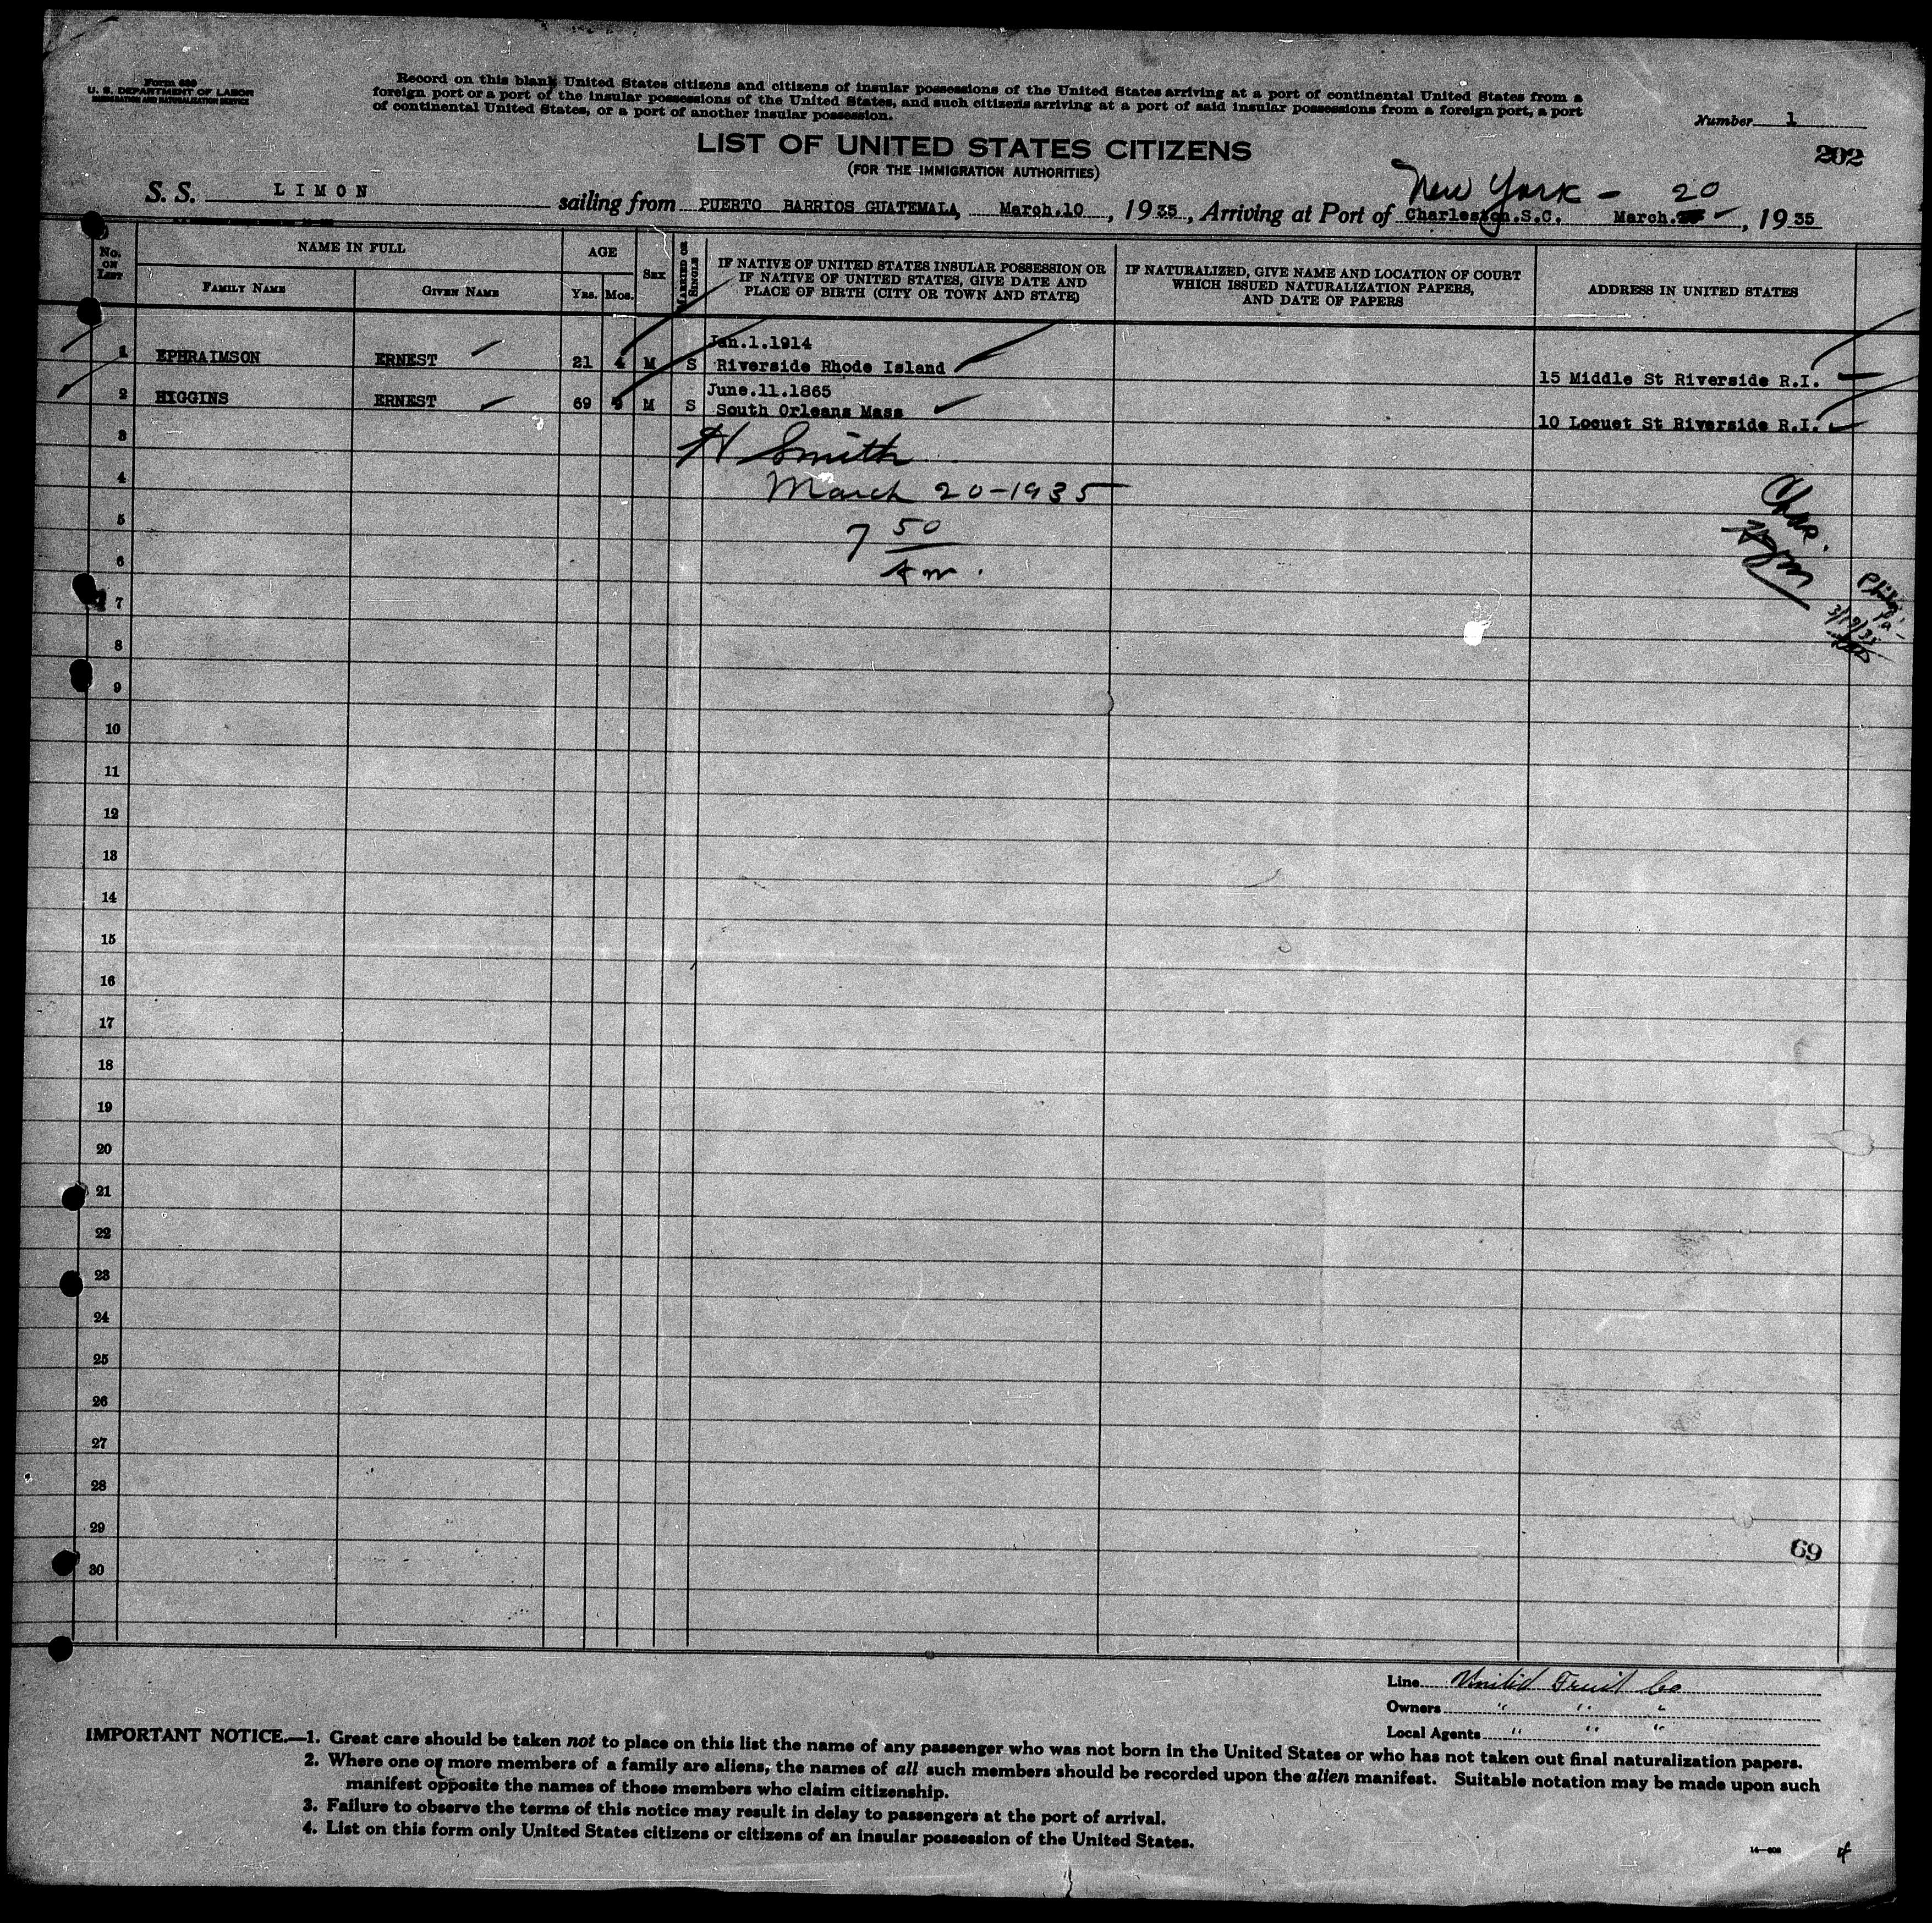 Form 630
U. S. DEPARTMENT OF LABOR
IMMIGRATION AND NATURALIZATION SERVICE
Record on this blank United States citizens and citizens of insular possessions of the United States arriving at a port of continental United States from a
foreign port or a port of the insular possessions of the United States, and such citizens arriving at a port of said insular possessions from a foreign port, a port
of continental United States, or a port of another insular possession.
Number 1
202
LIST OF UNITED STATES CITIZENS
(FOR THE IMMIGRATION AUTHORITIES)
New York - 20
S. S. LIMON sailing from PUERTO BARRIOS GUATEMALA, March.10, 1935, Arriving at Port of Charleston.S.C. March. , 1935
No. ON LIST
NAME IN FULL
FAMILY NAME
GIVEN NAME
AGE
YRS. MOS.
SEX
MARRIED OR SINGLE
IF NATIVE OF UNITED STATES INSULAR POSSESSION OR
IF NATIVE OF UNITED STATES, GIVE DATE AND
PLACE OF BIRTH (CITY OR TOWN AND STATE)
IF NATURALIZED, GIVE NAME AND LOCATION OF COURT
WHICH ISSUED NATURALIZATION PAPERS,
AND DATE OF PAPERS
ADDRESS IN UNITED STATES
Jan.1.1914
1 EPHRAIMSON ERNEST 21 4 M S Riverside Rhode Island 15 Middle St Riverside R.I.
June.11.1865
2 HIGGINS ERNEST 69 9 M S South Orleans Mass 10 Locuet St Riverside R.I.
3
H Smith
4
March 20-1935
5
7 50
6
Am.
Chas.
7
Phila, Pa -
3/19/35
8
9
10
11
12
13
14
15
16
17
18
19
20
21
22
23
24
25
26
27
28
29
69
30
Line United Fruit Co
Owners " " "
Local Agents " " "
IMPORTANT NOTICE.—1. Great care should be taken not to place on this list the name of any passenger who was not born in the United States or who has not taken out final naturalization papers.
2. Where one or more members of a family are aliens, the names of all such members should be recorded upon the alien manifest. Suitable notation may be made upon such
manifest opposite the names of those members who claim citizenship.
3. Failure to observe the terms of this notice may result in delay to passengers at the port of arrival.
4. List on this form only United States citizens or citizens of an insular possession of the United States.
14—608